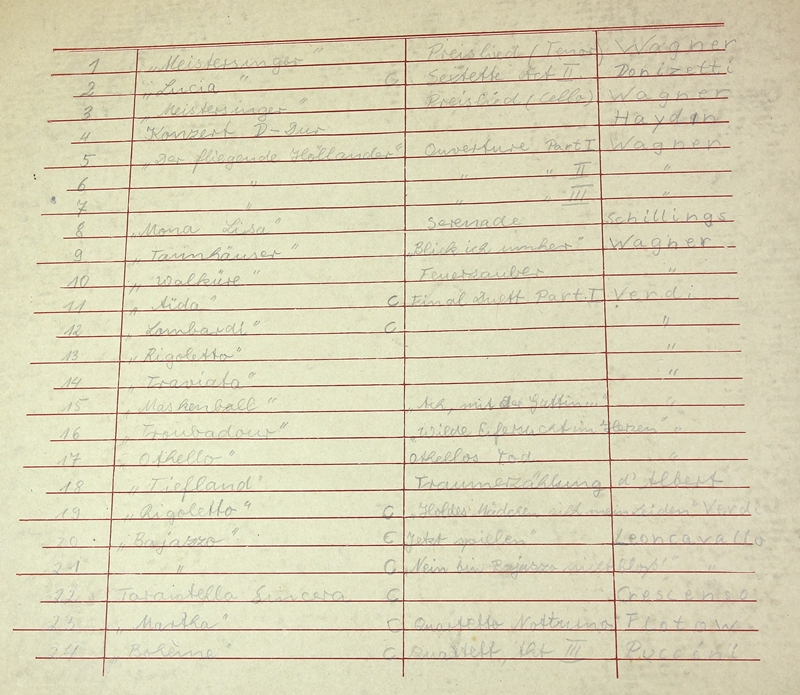 1 „Meistersinger" Preislied (Tenor) Wagner
2 „Lucia" C Sextette Act II Donizetti
3 „Meistersinger" Preislied (Cello) Wagner
4 Konzert D-Dur Haydn
5 „Der fliegende Holländer" Ouverture Part I Wagner
6 " " " II "
7 " " " III "
8 „Mona Lisa" Serenade Schillings
9 „Tannhäuser" „Blick ich umher" Wagner
10 „Walküre" Feuerzauber "
11 „Aïda" C Final Duett Part I Verdi
12 „Lombardi" C "
13 „Rigoletto" "
14 „Traviata" "
15 „Maskenball" „Ach, mit der Gattin"
16 „Troubadour" Eifersucht im Herzen" "
17 „Othello" Othellos Tod "
18 „Tiefland" Traumerzählung d'Albert
19 „Rigoletto" C „Holdes Mädchen mein Leiden" Verdi
20 „Bajazzo" C „Jetzt spielen" Leoncavallo
21 " C „Nein bin Bajazzo nicht bloß!" "
22 Tarantella Sincera C Crescenzo
23 „Martha" C Quartetto Notturno Flotow
24 „Bohème" C Quartett, Akt III Puccini